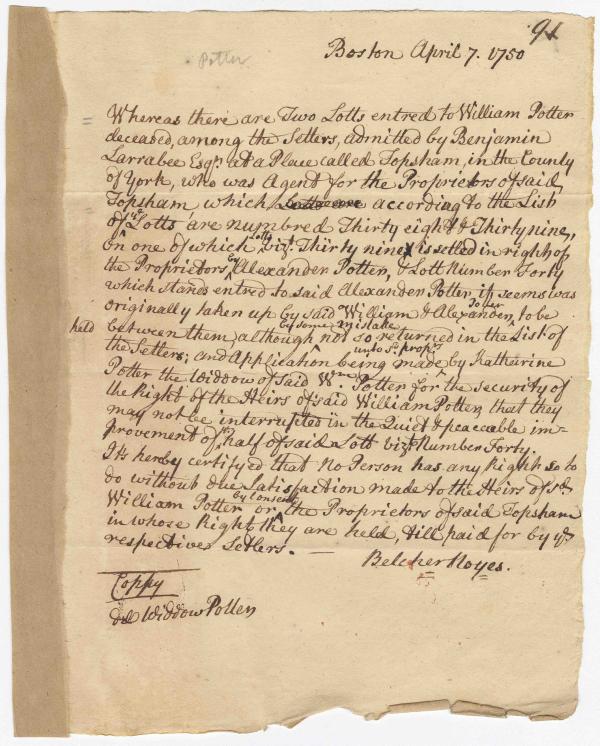 91
Potter
Boston April 7. 1750
Whereas there are Two Lotts entred to William Potter
deceased, among the Setlers, admitted by Benjamin
Larrabee Esqr. at a Place called Topsham, in the County
of York, who was Agent for the Proprietors of said
Topsham, which are according to the List
of ye Lotts are numbred Thirty eight & Thirty nine,
on one of which Lotts vizt. Thirty nine is setled in right of
the Proprietors by Alexander Potter, & Lott Number Forty
which stands entred to said Alexander Potter it seems was
originally taken up by said William & Alexander Potter, to be
held between them, although by some mistake not so returned in the List of
the Setlers; and Application being made unto sd. proprs. by Katharine
Potter the Widdow of said Wm. Potter for the security of
the Right of the Heirs of said William Potter, that they
may not be interrupted in the Quiet & peaceable im=
provement of ye half of said Lott vizt. Number Forty.
It's hereby certifyed that no Person has any Right so to
do without due Satisfaction made to the Heirs of sd.
William Potter or by Consent the Proprietors of said Topsham
in whose Right they are held, till paid for by ye.
respective Setlers. —
Belcher Noyes.
Coppy
Widdow Potter